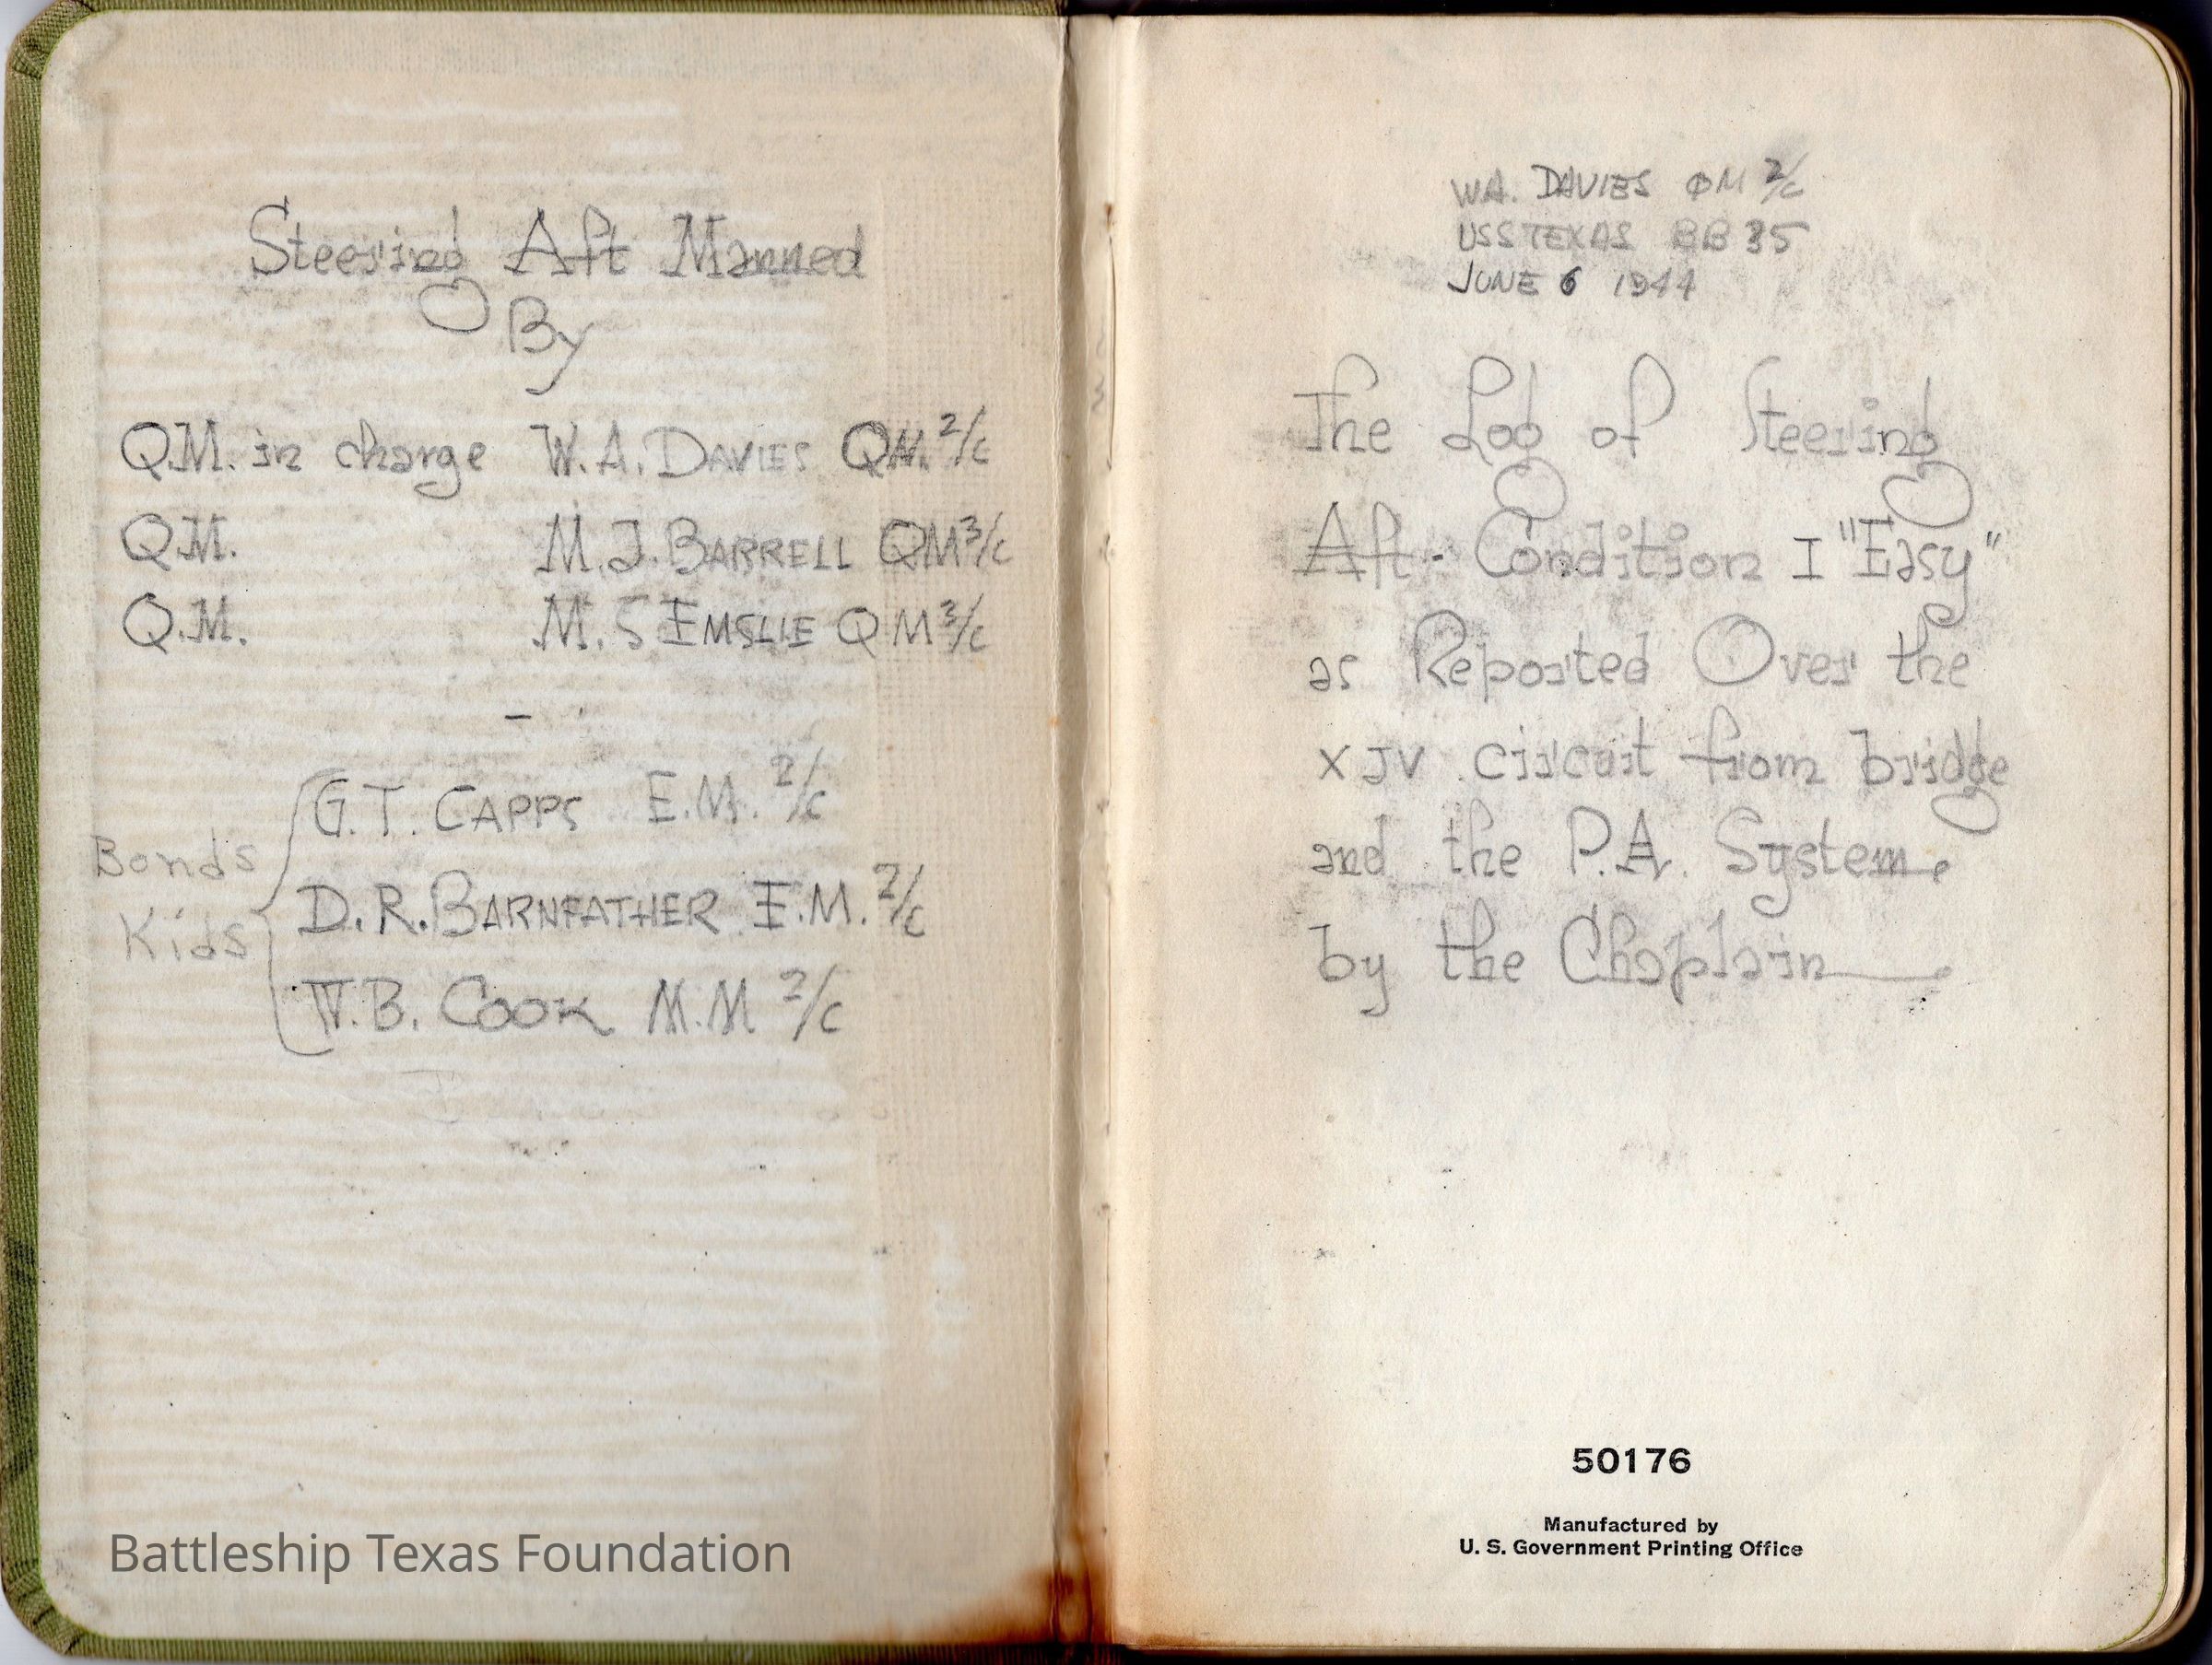 Steering Aft Manned
By
Q.M. in charge W.A. DAVIES QM. 2/c
Q.M. M.J. BARRELL QM 3/c
Q.M. M.S EMSLIE QM 3/c
-
G.T. CAPPS E.M. 2/c
Bonds
D.R. BARNFATHER E.M. 2/c
Kids
W.B. COOK M.M 2/c
Battleship Texas Foundation
W.A. DAVIES QM 2/c
USS TEXAS BB 35
JUNE 6 1944
The Log of Steering
Aft - Condition I "Easy"
as Reported Over the
X JV circuit from bridge
and the P.A. System.
by the Chaplain
50176
Manufactured by
U. S. Government Printing Office